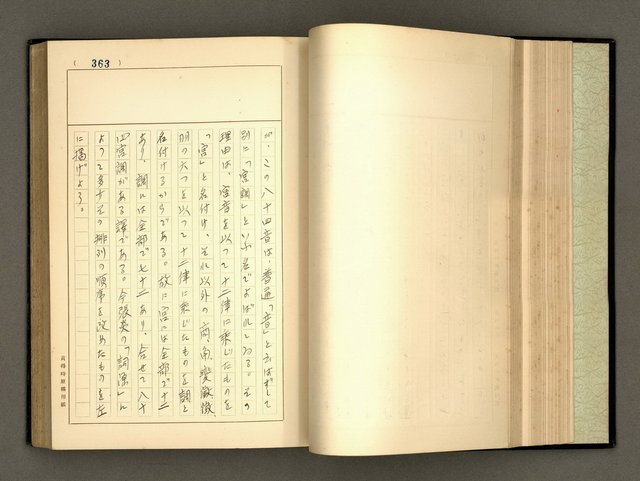 (363)
が、この八十四音は、普通「音」と云はずして
別に「宮調」といふ名でよばれてゐる。その
理由は、宮音を以つて十二律に乗じたものを
「宮」と名付け、それ以外の商、角、変徴、徴、
羽の六つを以つて十二律に乗じたものを調と
名付けるからである。故に宮には全部で十二
あり、調には全部で七十二あり、合せて八十
四宮調がある譯である。今張炎の「詞源」に
よつて多少その排列の順序を改めたものを左
に掲げよう。
黃得時原稿用紙